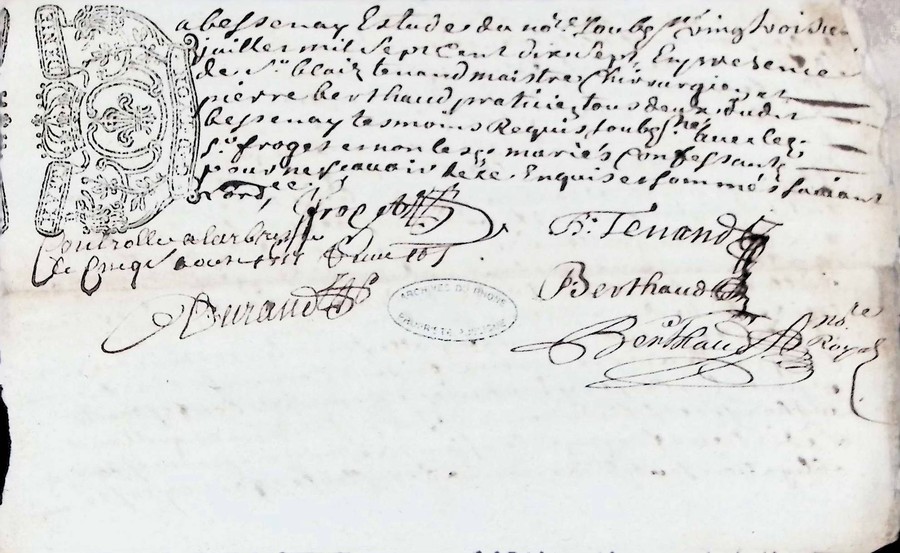 a bessenay Estude du no.re soubz.né vingt troisie
juillet mil sept cent dix sept, En presence
de S.r blaiz tenand maistre chirurgien et
pierre berthaud praticien tous deux dudit
bessenay tesmoins Requis soubz.nés avec led.
S.r froget et non les mariés Confessant
pour ne scavoir de ce Enquis et sommés suivant
Lord.ce
froget
B. Tenand
Controllé a larbresle
le cinq.e aoust 1717
Durand
ARCHIVES DU RHÔNE
Berthaud
Berthaud no.re
Royal